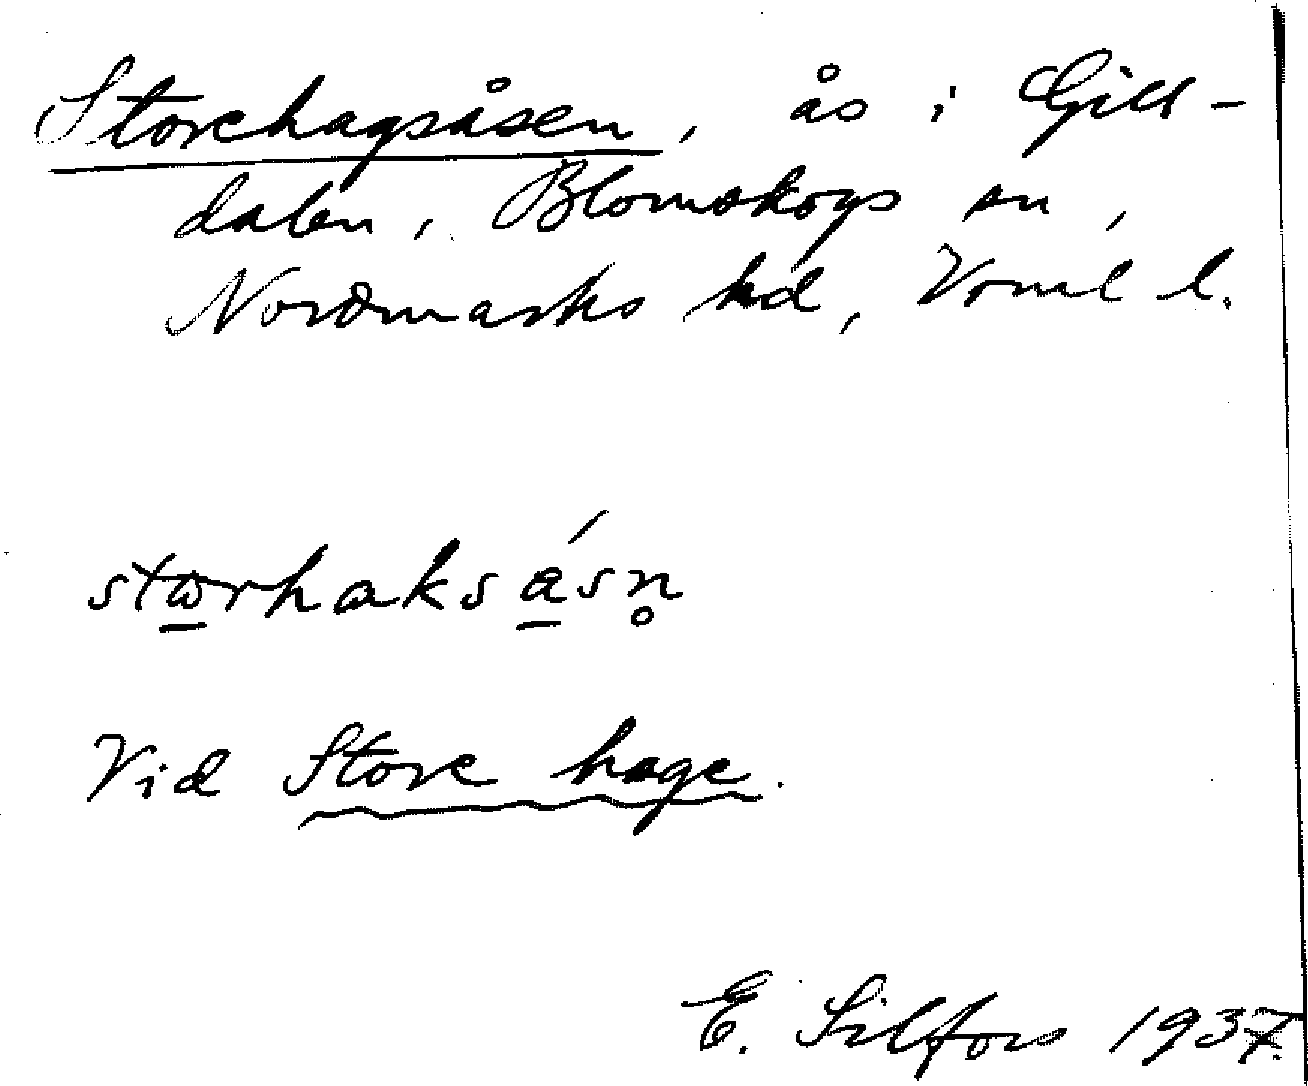 Storehagsåsen, ås i Gill-
dalen, Blomskogs sn,
Nordmarks hd, Vrml l.
stωrhaksásn̥
Vid Store hage.
E. Silfors 1937.